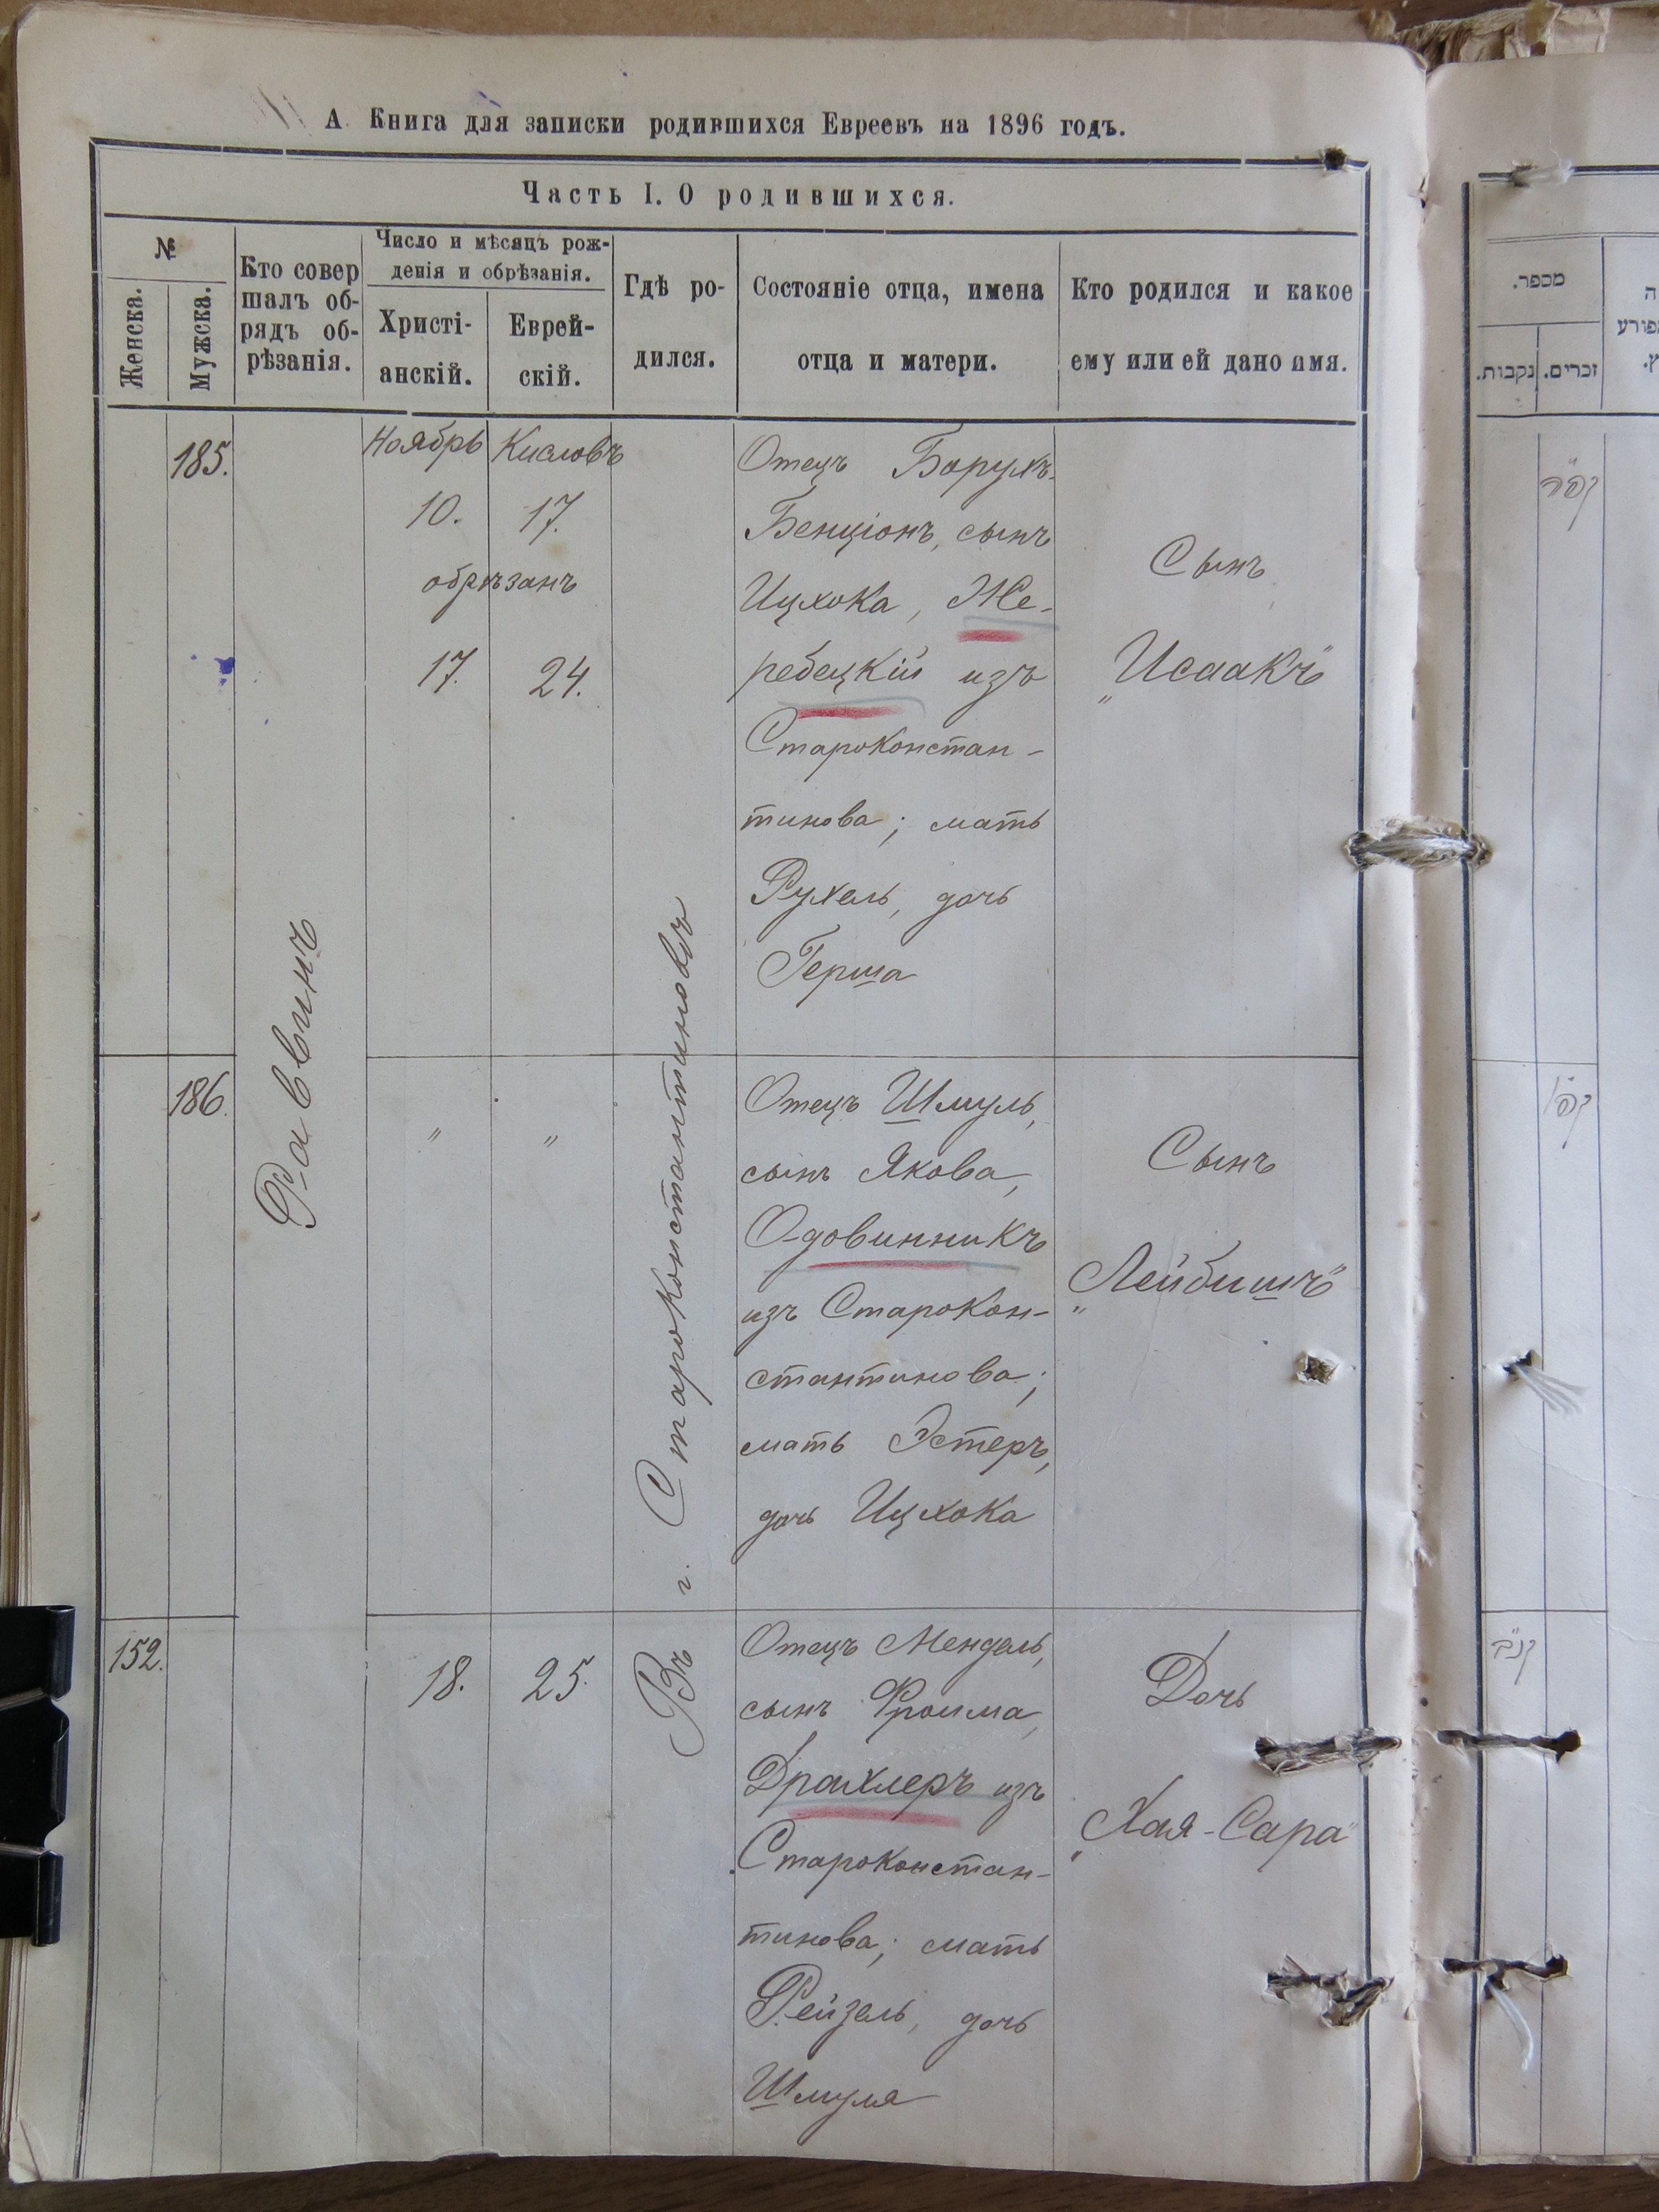 А. Книга для записки родившихся Евреевъ на 1896 годъ.
Часть I. О родившихся.
№
Женска.
Мужска.
Кто совер
шалъ об-
рядъ об-
рѣзанія.
Число и мѣсяцъ рож-
денія и обрѣзанія.
Христі-
анскій.
Еврей-
скій.
Гдѣ ро-
дился.
Состояніе отца, имена
отца и матери.
Кто родился и какое
ему или ей дано имя.
Раввинъ
Въ г. Староконстантиновъ
185.
Ноябрь Кисловъ
10. 17.
обрѣзанъ
17. 24.
Отецъ Борухъ-
Бенціонъ, сынъ
Ицхока, Же-
ребецкій изъ
Староконстан-
тинова; мать
Рухель, дочь
Герша
Сынъ
„Исаакъ"
186.
" "
Отецъ Шмуль,
сынъ Якова,
Одовинникъ
изъ Старокон-
стантинова;
мать Эстеръ,
дочь Ицхока
Сынъ
„Лейбишъ"
152.
18. 25.
Отецъ Мендель,
сынъ Фроима,
Драхлеръ изъ
Староконстан-
тинова; мать
Рейзель, дочь
Шмуля
Дочь
„Хая-Сара"
מספר.
זכרים.
נקבות.
קפ"ה
קפ"ו
קנ"ב